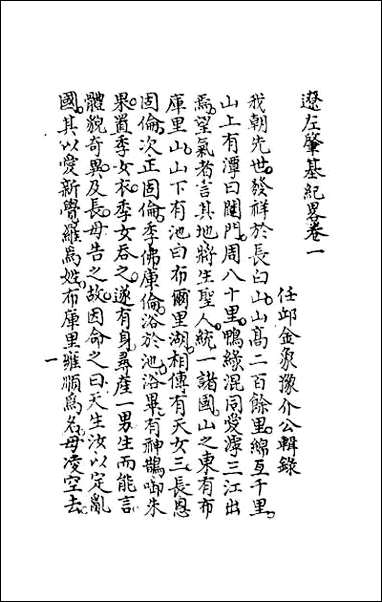 遼左肇基紀畧卷一
任邱金象豫介公輯錄
我朝先世發祥於長白山山高二百餘里綿亙千里
山上有潭曰闥門周八十里鴨綠混同愛滹三江出
焉望氣者言其地將生聖人統一諸國山之東有布
庫里山山下有池曰布爾里湖相傳有天女三長恩
固倫次正固倫季佛庫倫浴於池浴畢有神鵲啣朱
果置季女衣季女吞之遂有身尋產一男生而能言
體貌奇異及長母告之故因命之曰天生汝以定亂
國其以愛新覺羅為姓布庫里雍順為名母凌空去
一